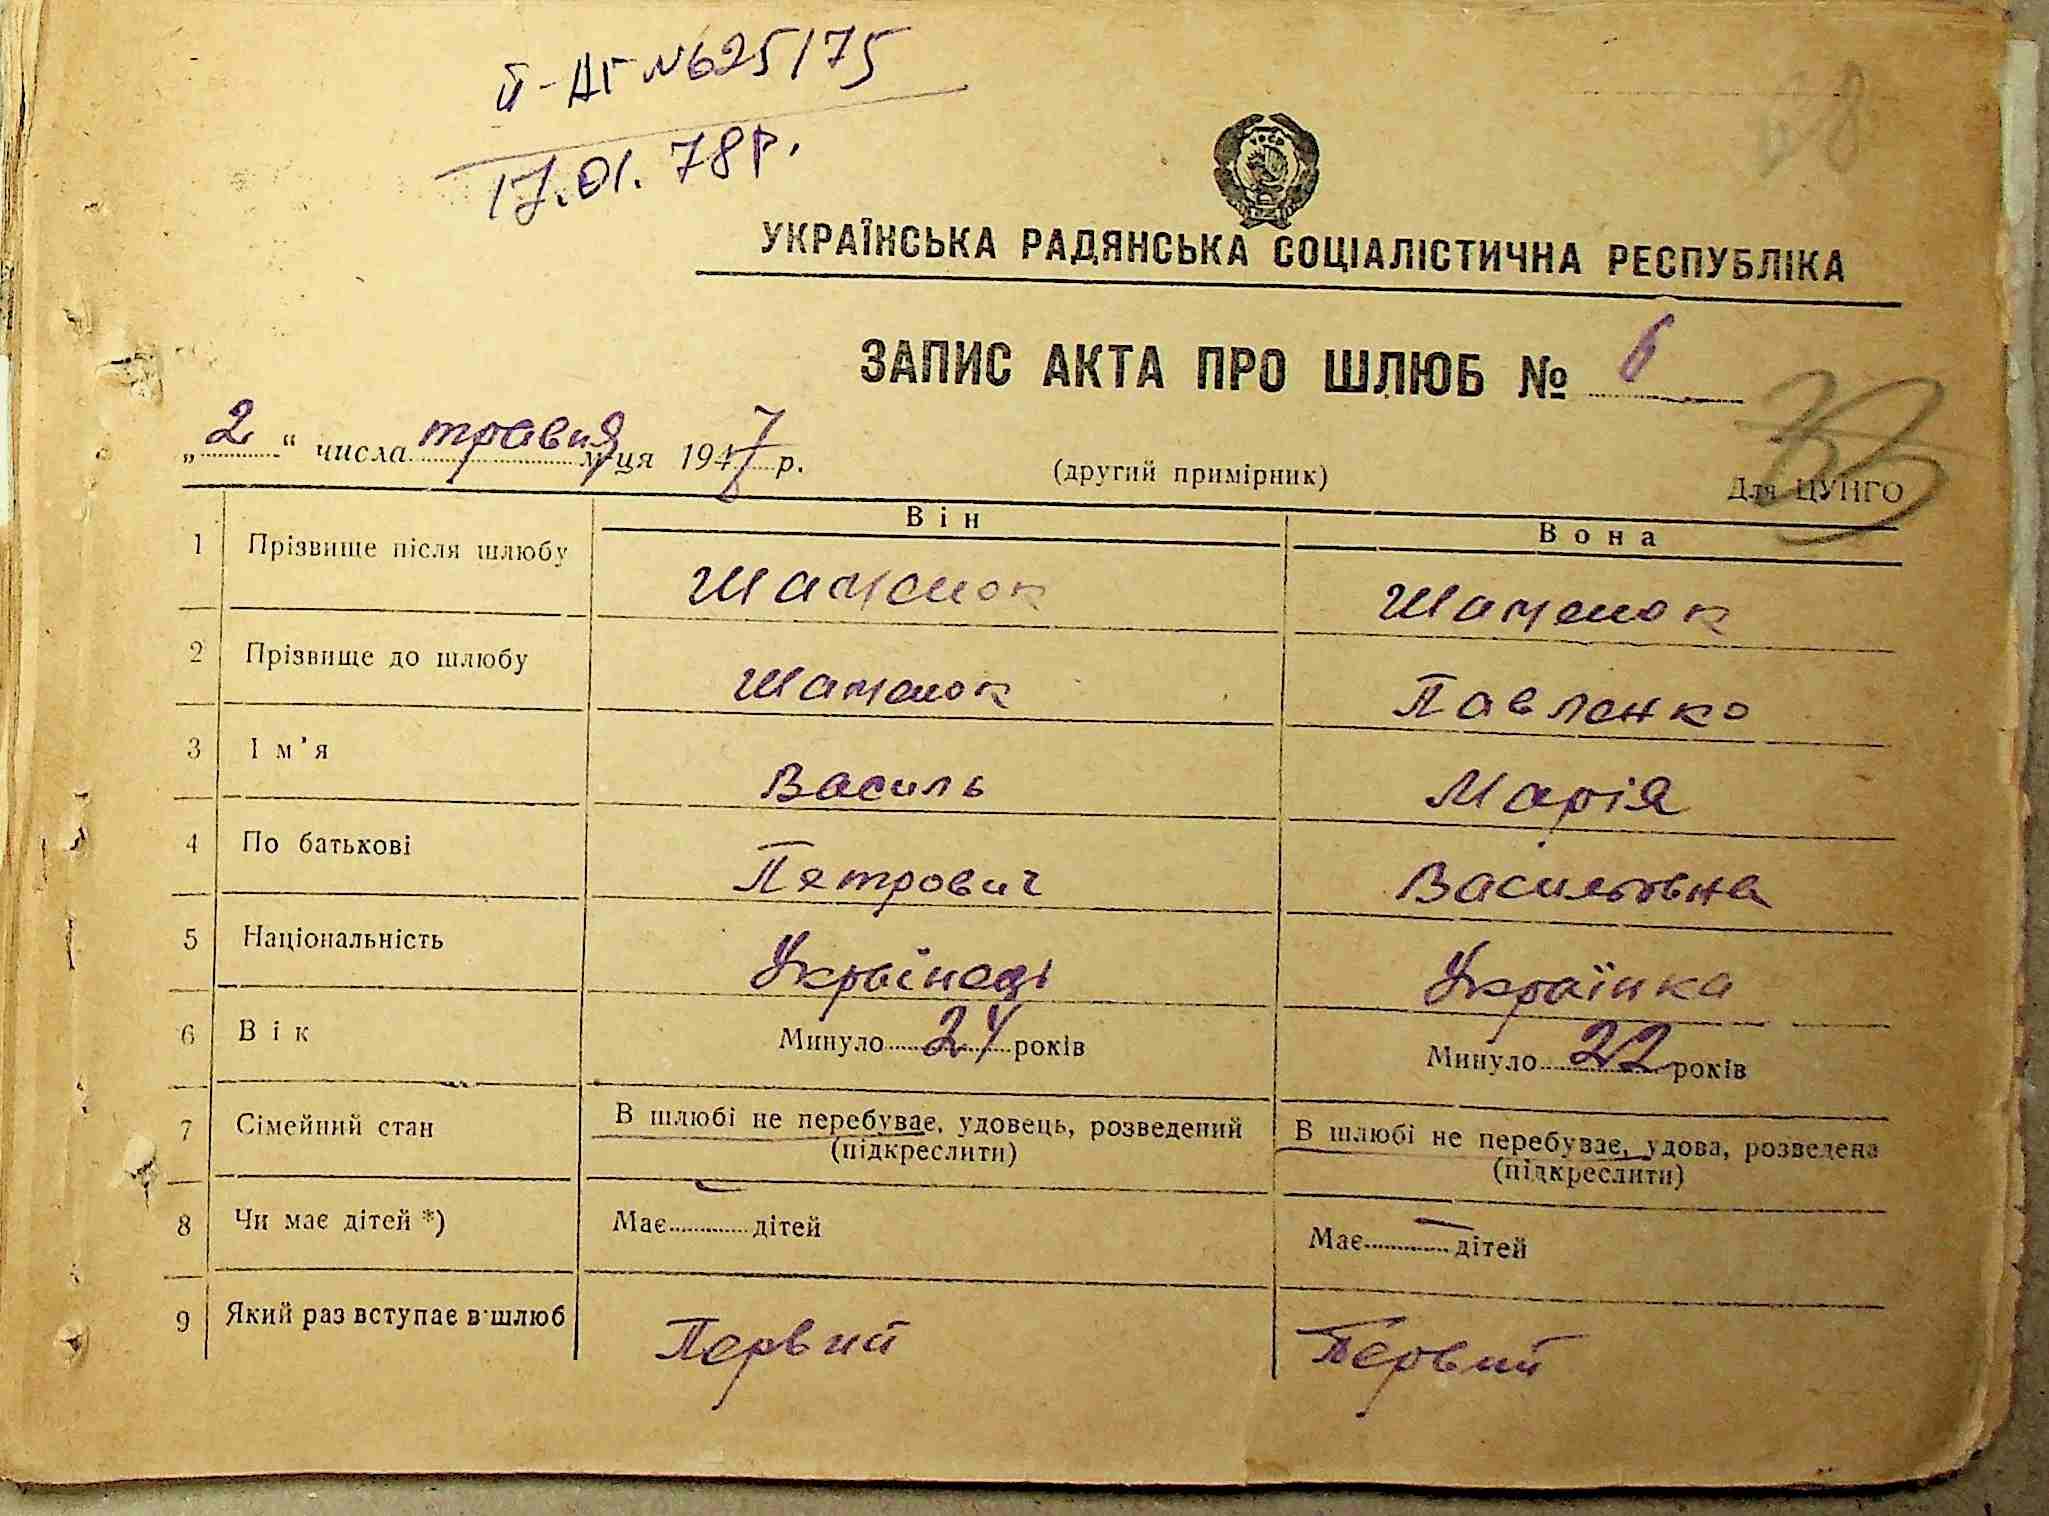 ІІ-АГ №625/75
17.01.78р.
УКРАЇНСЬКА РАДЯНСЬКА СОЦІАЛІСТИЧНА РЕСПУБЛІКА
ЗАПИС АКТА ПРО ШЛЮБ № 6
„2“ числа травня м-ця 1947 р.
(другий примірник)
Для ЦУНГО
Він Вона
1 Прізвище після шлюбу Шаменок Шаменок
2 Прізвище до шлюбу Шаменок Павленко
3 Ім'я Василь Марія
4 По батькові Петрович Васильовна
5 Національність Українець Українка
6 Вік Минуло 24 років Минуло 22 років
7 Сімейний стан В шлюбі не перебуває, удовець, розведений В шлюбі не перебуває, удова, розведена
(підкреслити) (підкреслити)
8 Чи має дітей *) Має — дітей Має — дітей
9 Який раз вступає в шлюб Первий Первий